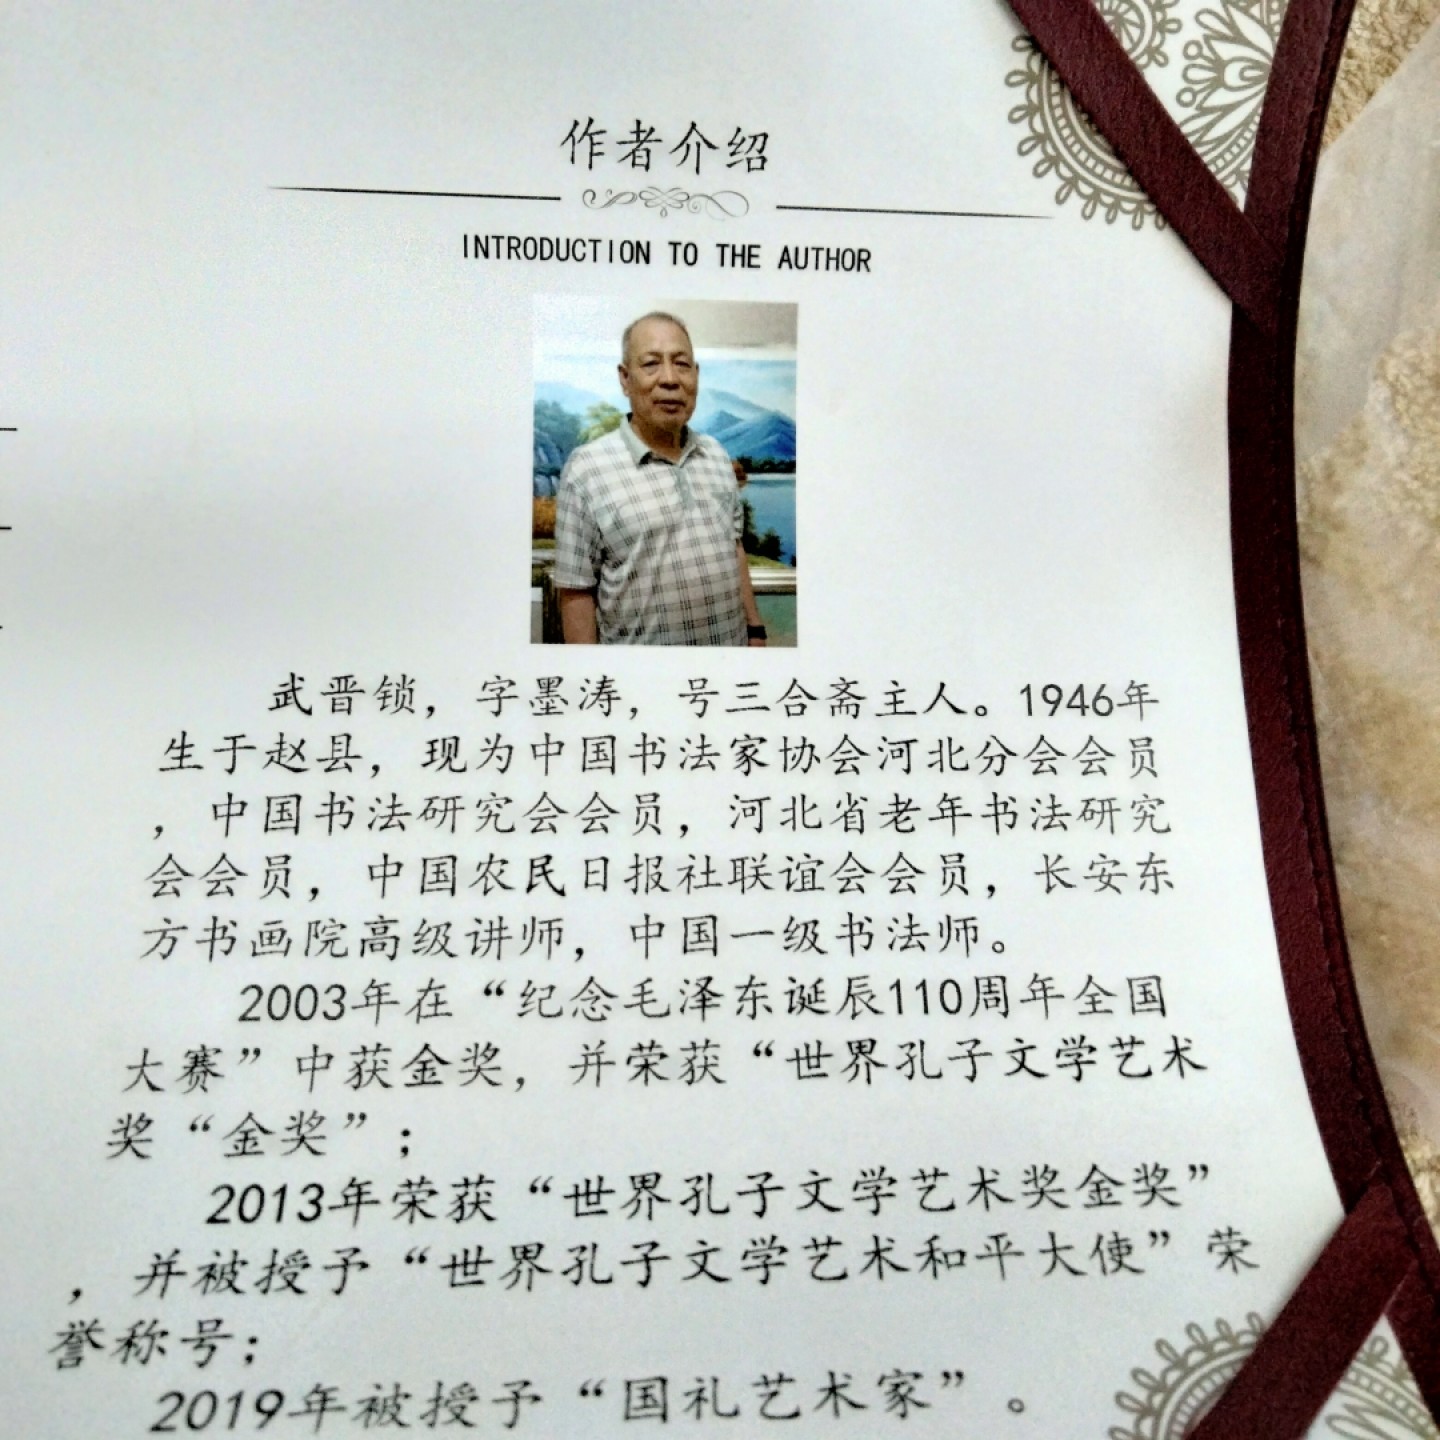 作者介绍
INTRODUCTION TO THE AUTHOR
武晋锁，字墨涛，号三合斋主人。1946年
生于赵县，现为中国书法家协会河北分会会员
，中国书法研究会会员，河北省老年书法研究
会会员，中国农民日报社联谊会会员，长安东
方书画院高级讲师，中国一级书法师。
2003年在“纪念毛泽东诞辰110周年全国
大赛”中获金奖，并荣获“世界孔子文学艺术
奖“金奖”；
2013年荣获“世界孔子文学艺术奖金奖”
，并被授予“世界孔子文学艺术和平大使”荣
誉称号；
2019年被授予“国礼艺术家”。